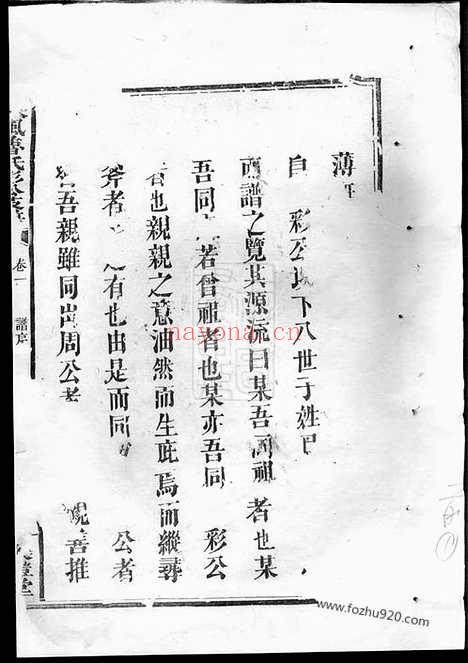 薄
自 彩公以下八世于姓
而譜之覽其源流曰某吾同祖者也某
吾同 若曾祖者也某亦吾同 彩公
者也親親之意油然而生庇焉而縱尋
斧者 有也由是而同 公者
吾親雖同出周公者 善推
氏彩公支
卷一
譜序
堂
nayona.cn
www.fozhu920.com